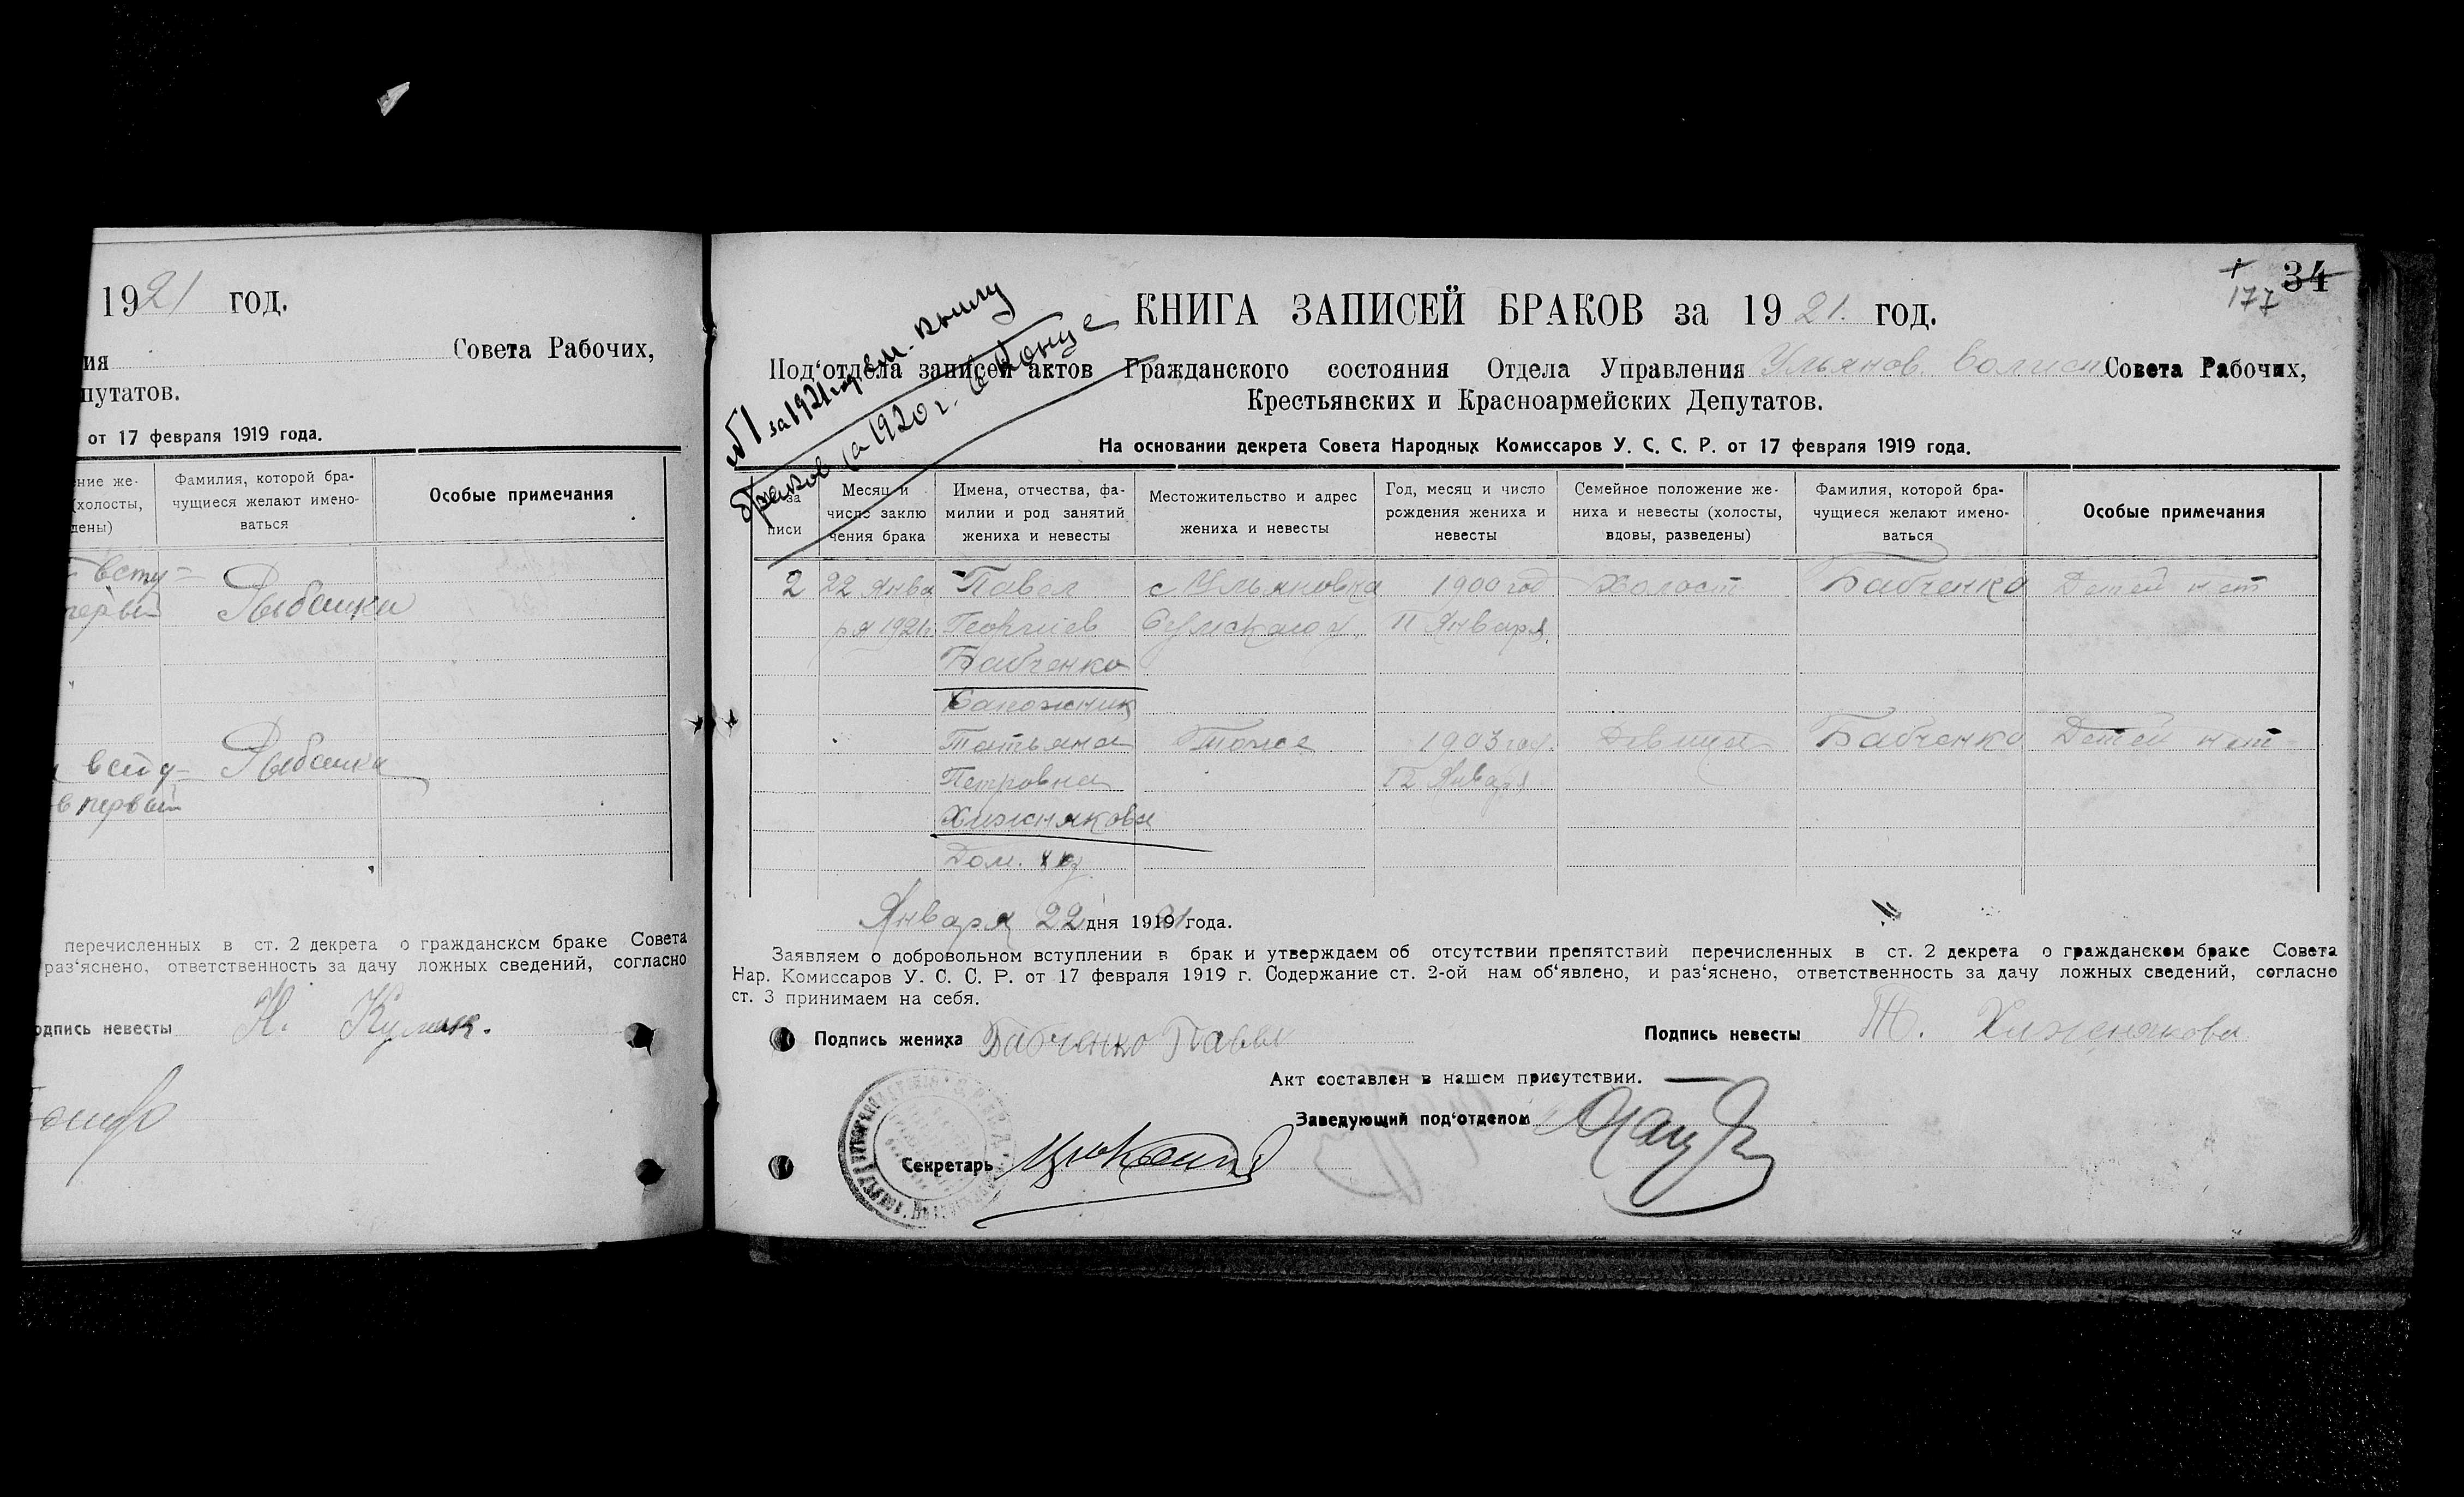 1921 год.
ия Совета Рабочих,
путатов.
от 17 февраля 1919 года.
ние же-
(холосты,
дены)
Фамилия, которой бра-
чущиеся желают имено-
ваться
Особые примечания
всту-
первый Рыбалки
всту- Рыбалка
в первый
перечисленных в ст. 2 декрета о гражданском браке Совета
раз‘яснено, ответственность за дачу ложных сведений, согласно
одпись невесты Н. Кулик.
34
177
№1 за 1921 год см. книгу
браков за 1920 г. в конце
КНИГА ЗАПИСЕЙ БРАКОВ за 1921. год.
Под‘отдела записей актов Гражданского состояния Отдела Управления Ульянов. Волисп Совета Рабочих,
Крестьянских и Красноармейских Депутатов.
На основании декрета Совета Народных Комиссаров У. С. С. Р. от 17 февраля 1919 года.
за
писи
Месяц и
число заклю
чения брака
Имена, отчества, фа-
милии и род занятий
жениха и невесты
Местожительство и адрес
жениха и невесты
Год, месяц и число
рождения жениха и
невесты
Семейное положение же-
ниха и невесты (холосты,
вдовы, разведены)
Фамилия, которой бра-
чущиеся желают имено-
ваться
Особые примечания
2 22 Янва Павел с Ульяновка 1900 год Холост Бабченко Детей нет
ря 1921г. Георгіев Сумского у. 11 Января.
Бабченко
Сапожник
Татьяна Тоже 1903 год. Девица Бабченко Детей нет
Петровна 12 Января
Хижнякова
Дом. хоз.
Января 22 дня 191921 года.
Заявляем о добровольном вступлении в брак и утверждаем об отсутствии препятствий перечисленных в ст. 2 декрета о гражданском браке Совета
Нар. Комиссаров У. С. С. Р. от 17 февраля 1919 г. Содержание ст. 2-ой нам об‘явлено, и раз‘яснено, ответственность за дачу ложных сведений, согласно
ст. 3 принимаем на себя.
Подпись жениха Бабченко Павел Подпись невесты Т. Хиженякова
Акт составлен в нашем присутствии.
Заведующий под‘отделом
Секретарь